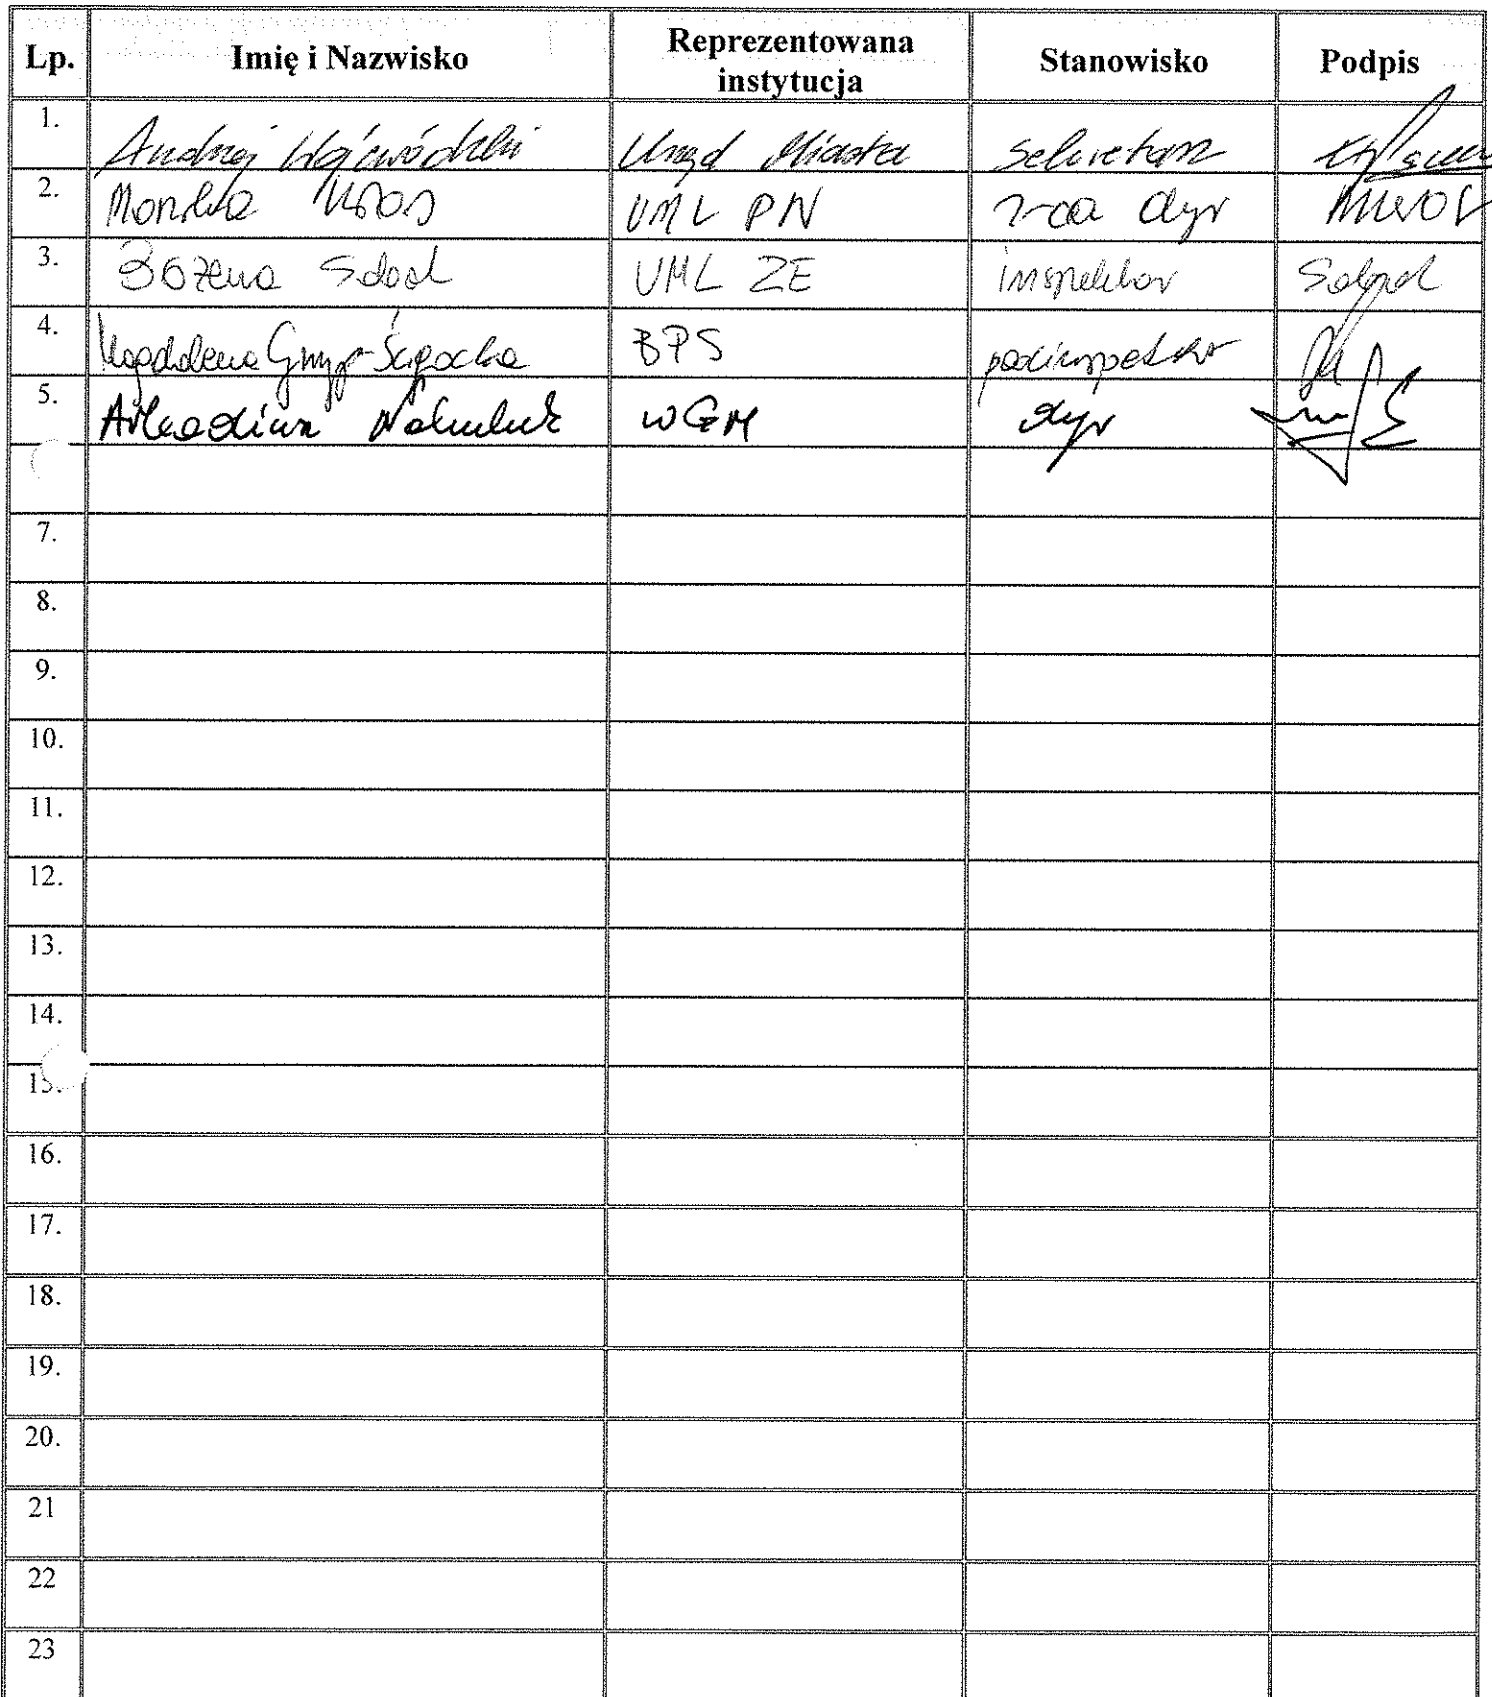 Lp. Imię i Nazwisko Reprezentowana instytucja Stanowisko Podpis
1. Andrzej Wojewódzki Urząd Miasta Sekretarz
2. Monika Kłos UML PN z-ca dyr
3. Bożena UML ZE inspektor
4. Magdalena Gnyp-Ścigocka BPS podinspektor
5. Arkadiusz Nahuluk WGM dyr
7.
8.
9.
10.
11.
12.
13.
14.
15.
16.
17.
18.
19.
20.
21
22
23